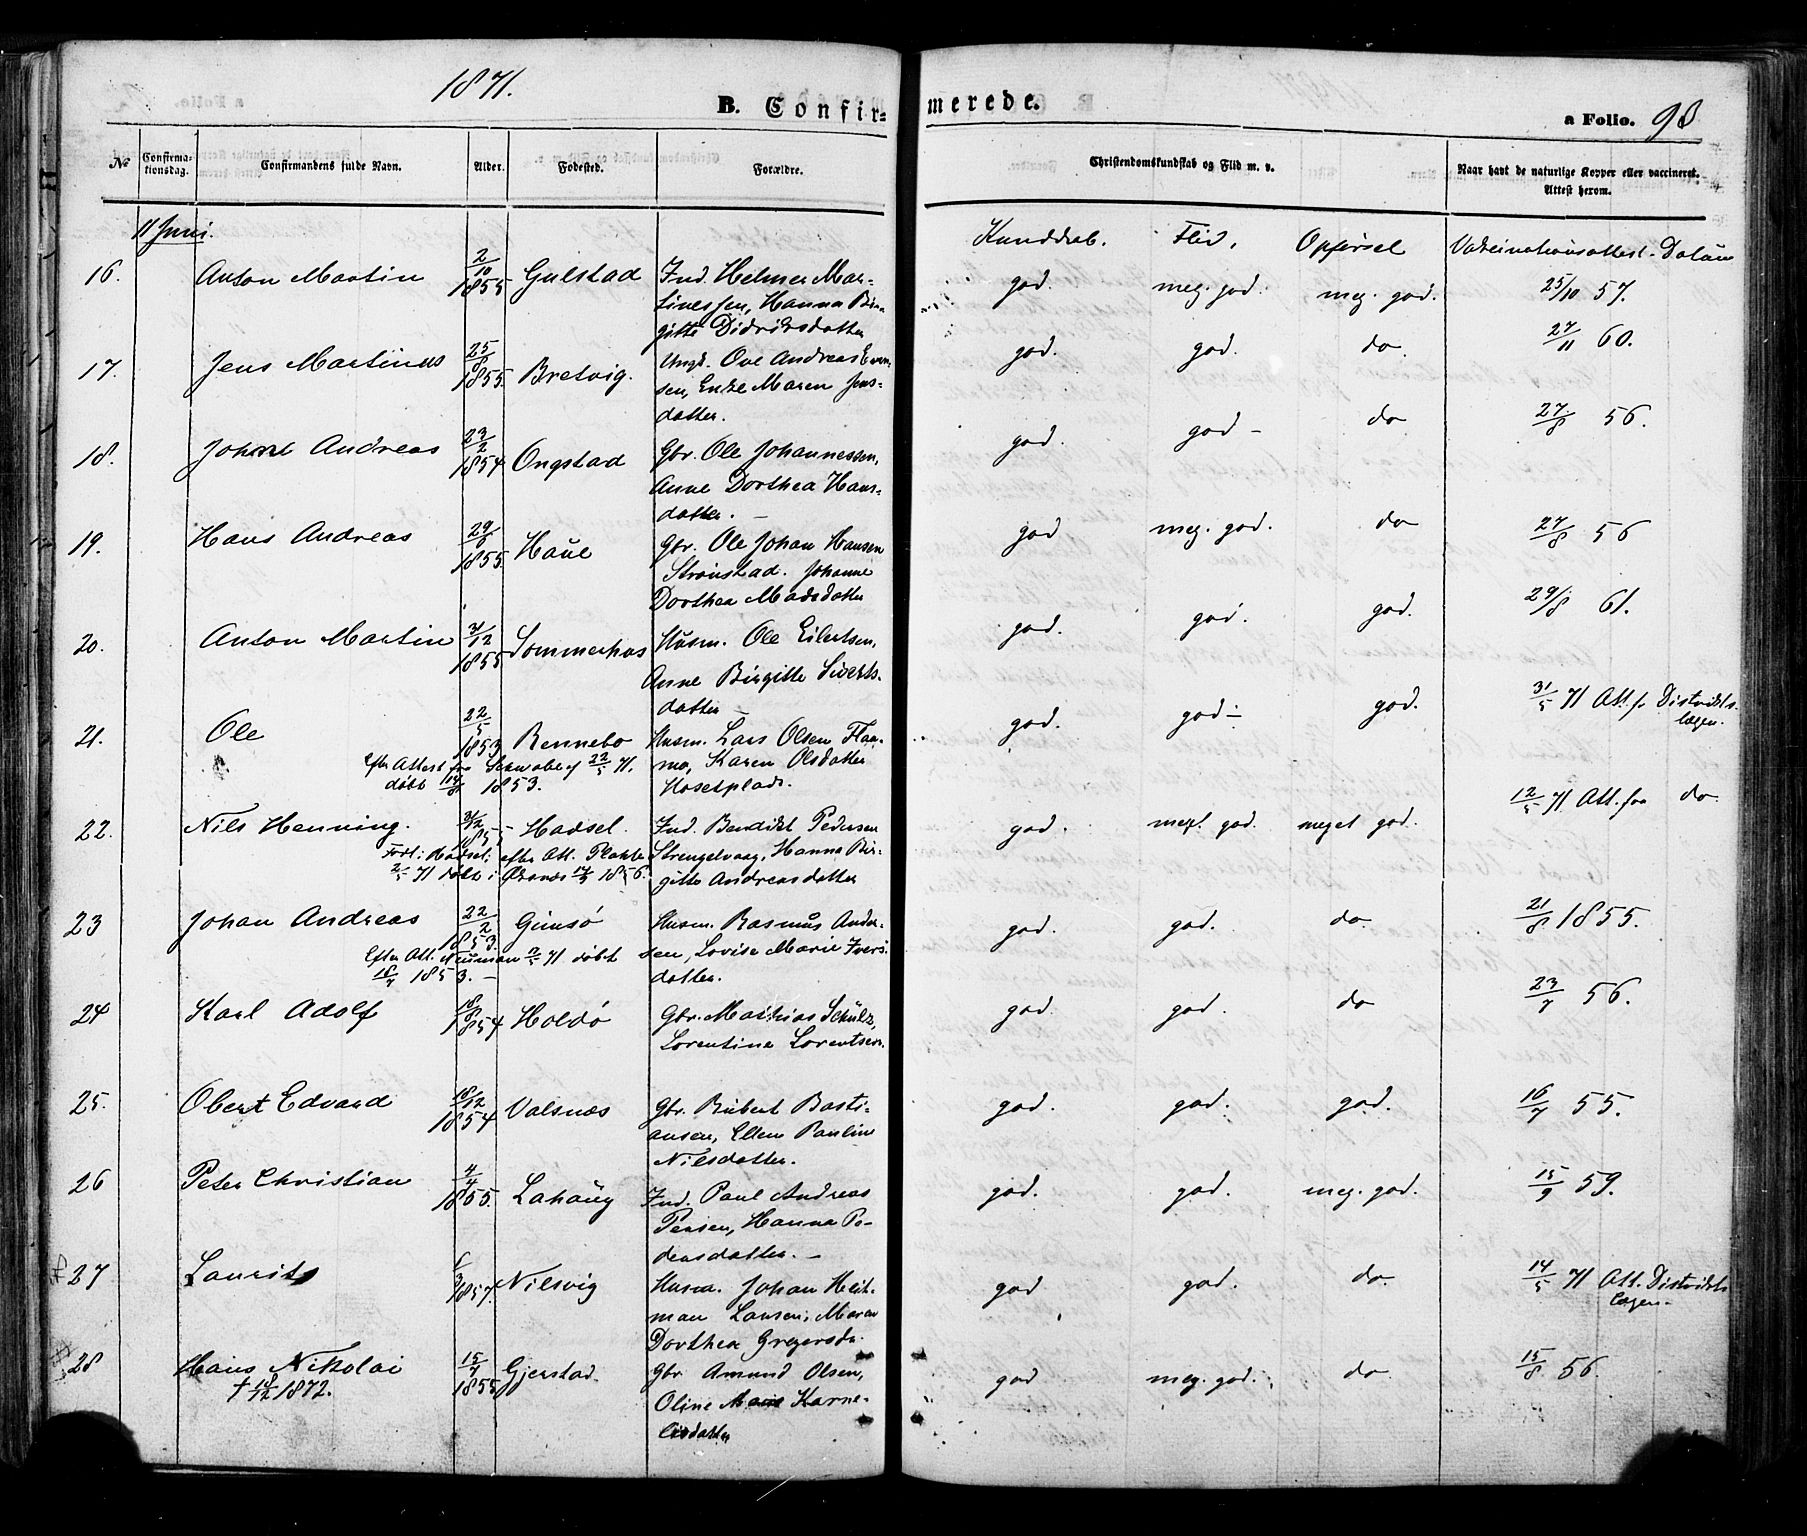 1871.
B. Confir-
merede.
a Folio. 98
No Confirma-tionsdag. Confirmandens fulde Navn. Alder. Fødested. Forældre. Christendomskundskab og Flid m. v. Naar havt de naturlige Kopper eller vaccineret. Attest herom.
11 Juni. Kundskab. Flid. Opførsel Vakcinationsattest-Datum
16. Anton Martin 2/10 1855 Gulstad Ind. Helmer Mar-
tinessen, Hanna Bir-
gitte Didriksdatter god. meg. god. meg. god. 25/10 57.
17. Jens Martinus 25/8 1855. Bretvig. Ungk. Ove Andreas Even-
sen, Enke Maren Jens-
datter. god. god. do. 27/11 60.
18. Johan Andreas 23/2 1854 Ongstad Gbr. Ole Johannessen,
Anne Dorthea Hans-
datter. — god. god — do 27/8 56.
19. Hans Andreas 29/8 1855 Haue Gbr. Ole Johan Hansen
Strønstad. Johanne
Dorthea Madsdatter god meg. god. do 27/8 56
20. Anton Martin 31/12 1855 Sommerhus Husm. Ole Eilertsen,
Anne Birgitte Siverts-
datter — god. god. god. 29/8 61.
21. Ole 22/5 1853 Rennebo Husm. Lars Olsen Flaa-
mo, Karen Olsdatter
Hosetplads. god. god- god. 31/5 71 Att. fr Distrikts-
lægen.
Efter Attest fra Schwabe af 22/5 71.
døbt 14/8 1853.
22. Nils Henning. 31/12 1855 Hadsel. Ind. Bendikt Pedersen
Strengelvaag, Hanna Bir-
gitte Andreasdatter god. meget god. meget god. 12/5 71 Att. fra do.
Født i Hadsel; efter Att. Plahte
2/5 71 døbt i Øksnæs 1856.
23 Johan Andreas 22/2 1853. Gimsø Husm. Rasmus Ander-
sen, Lovise Marie Ivers-
datter. god. god. do 21/8 1855.
Efter Att. Neuman 2/5 71 døbt
16/7 1853. —
24 Karl Adolf 1854 Holdø Gbr. Mathias Schülz,
Lorentine Lorentsen. god. god. do 23/7 56.
25. Obert Edvard 18/12 1854 Valsnæs Gbr. Rubert Basti-
ansen, Ellen Pauline
Nilsdatter. god. god. god. 16/7 55.
26 Peter Christian 4/4 1855. Lahaug Ind. Paul Andreas
Persen, Hanna Pe-
dersdatter. — god. god. meg. god. 15/9 59.
27 Laurits 1/3 1857. Nilsvig Husm. Johan Heit-
man Larsen, Maren
Dorthea Gregersda. god god. do 14/5 71 Att. Distrikts
lægen.
28 Hans Nikolai 15/7 1855 Gjerstad. Gbr Amund Olsen,
Oline Karne-
liusdatter god meg. god. do. 15/8 56.
† 18/12 1872.